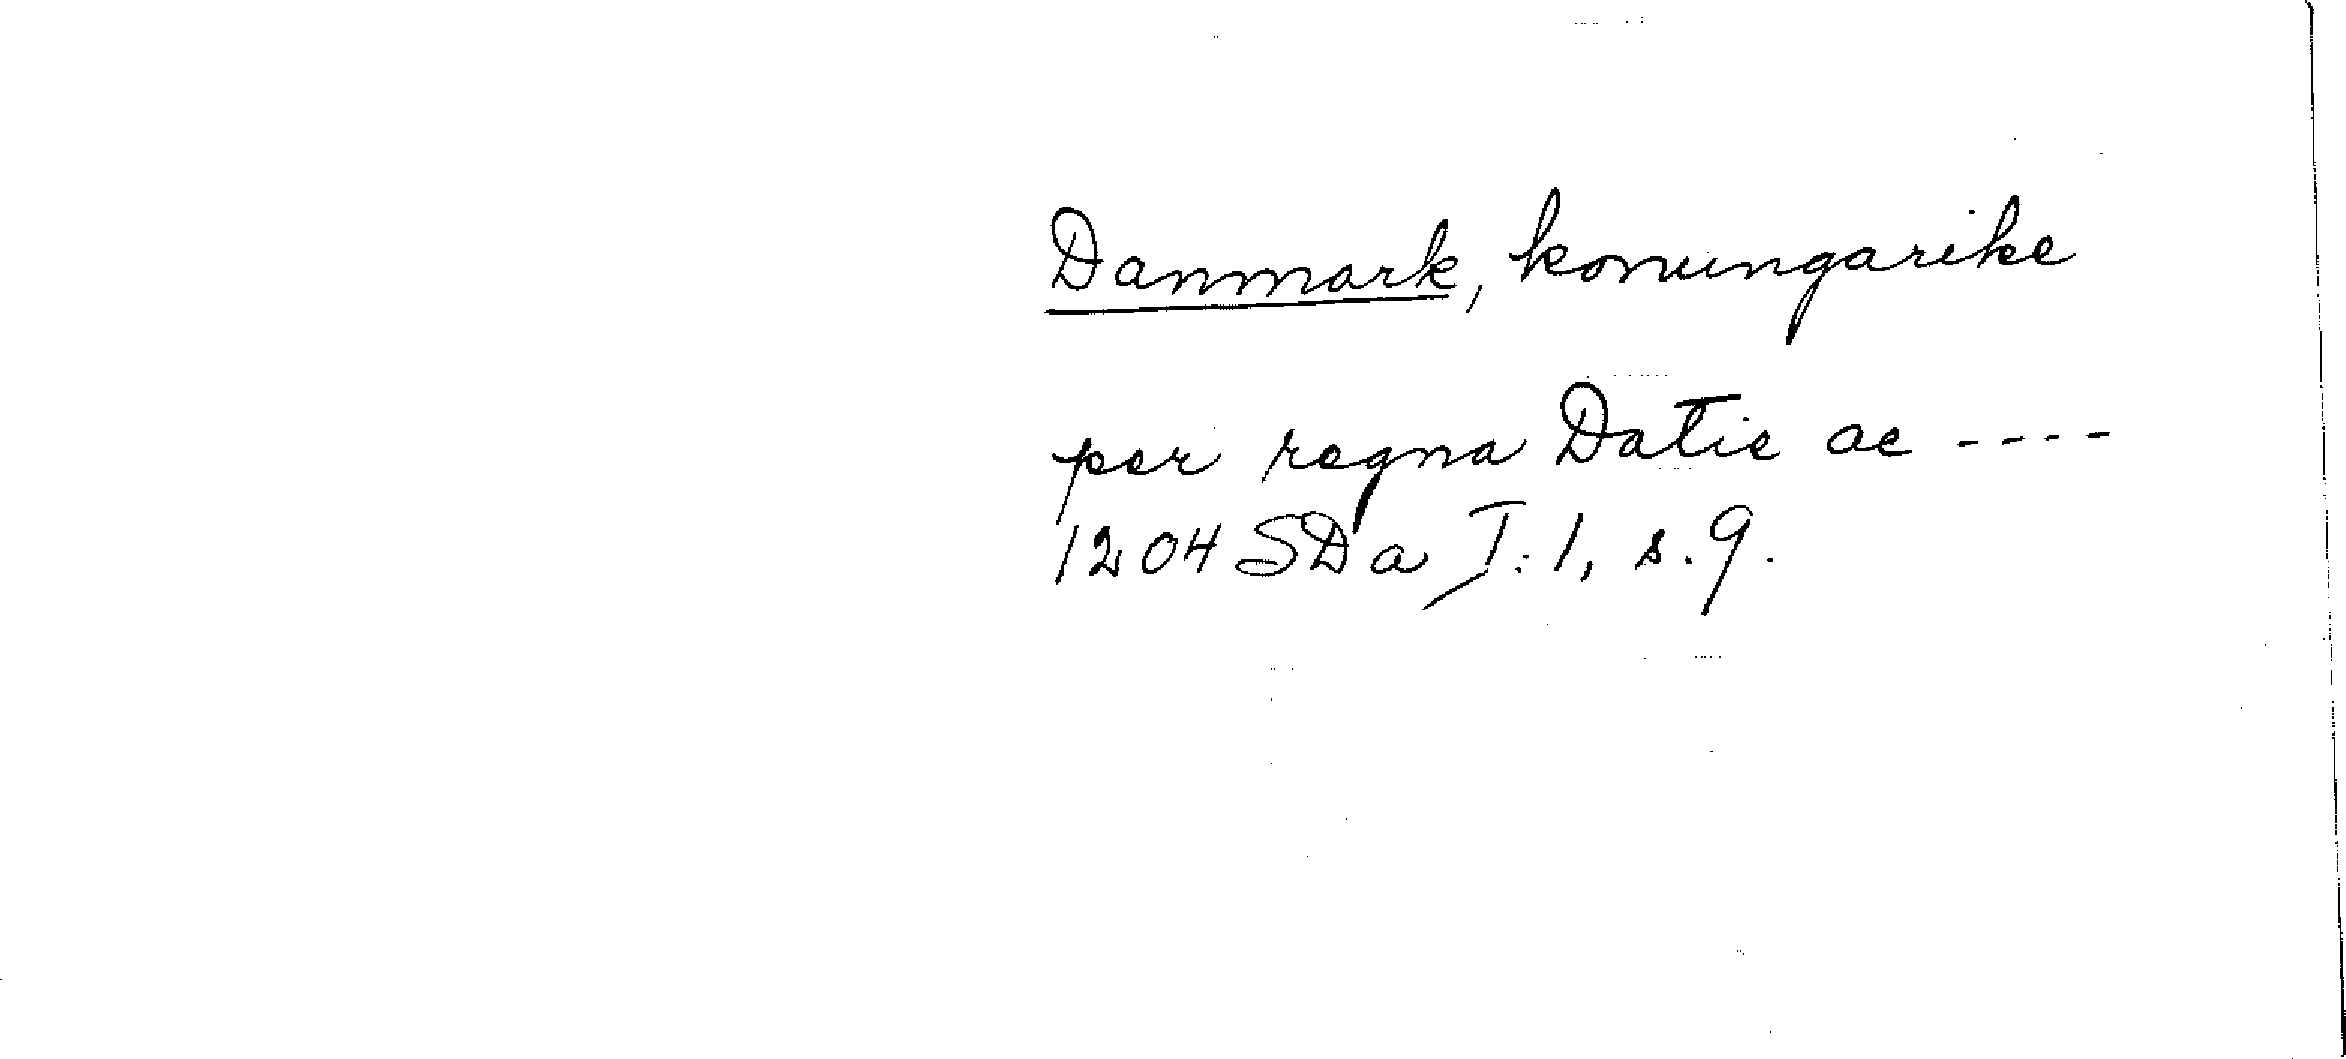 Danmark, konungarike
per regna Datie ac ----
1204 SDa I:1, s. 9.